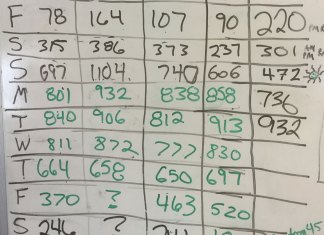 F 78 164 107 90 220
S 315 386 373 237 301
S 697 1104 740 606 472
M 801 932 838 858 736
T 840 906 812 913 932
W 811 872 777 830
T 664 658 650 697
F 370 ? 463 520
S 246 ?
45